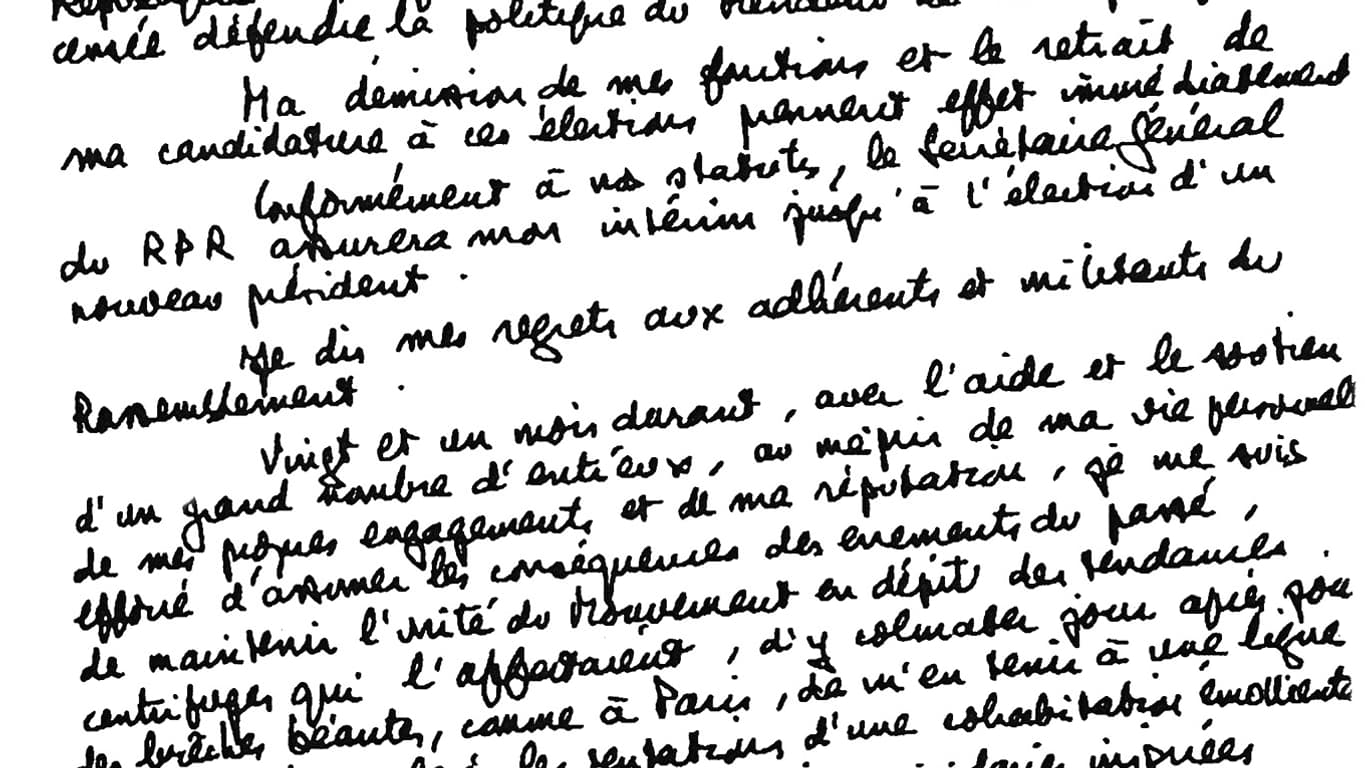 censée défendre la politique du
Ma démission de mes fonctions et le retrait de
ma candidature à ces élections prennent effet immédiatement
Conformément à nos statuts, le Secrétaire général
du RPR assurera mon intérim jusqu'à l'élection d'un
nouveau président.
Je dis mes regrets aux adhérents et militants du
Rassemblement.
Vingt et un mois durant, avec l'aide et le soutien
d'un grand nombre d'entre eux, au mépris de ma vie personnel
de mes propres engagements et de ma réputation, je me suis
efforcé d'assumer les conséquences des évenements du passé,
de maintenir l'unité du Mouvement en dépit des tendances
centrifuges qui l'affectaient, d'y colmater jour après jour
des brèches béantes, comme à Paris, de m'en tenir à une ligne
les tentations d'une cohabitation émolliente
inspirées